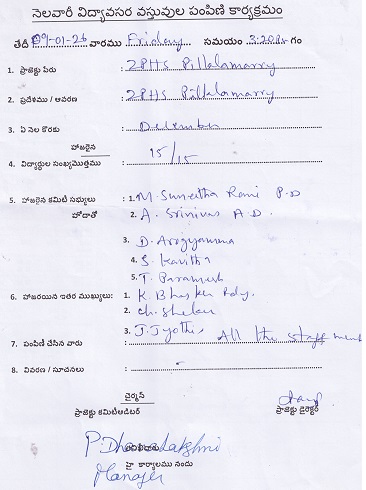 నెలవారీ విద్యావసర వస్తువుల పంపిణి కార్యక్రమం
తేదీ 09-01-26 వారము Friday సమయం 3:20 గం
1. ప్రాజెక్టు పేరు : ZPHS Pillalamarry
2. ప్రదేశము / ఆవరణ : ZPHS Pillalamarry
3. ఏ నెల కొరకు : December
హాజరైన
4. విద్యార్థుల సంఖ్య/మొత్తము : 15/15
5. హాజరైన కమిటి సభ్యులు : 1. M. Suneetha Rani P.D
హోదాతో 2. A. Srinivas A.D.
3. D. Arogyamma
4. S. Kavitha
5. T. Paramesh
6. హాజరయిన ఇతర ముఖ్యులు: 1. K. Bhasker Rdy.
2. Ch. Sheker
3. J. Jyothi All the staff
7. పంపిణి చేసిన వారు :
8. వివరణ / సూచనలు : -
చైర్మన్
ప్రాజెక్టు కమిటఆడిటర్ ప్రాజెక్టు డైరెక్టర్
హై కార్యాలము నందు
Manager